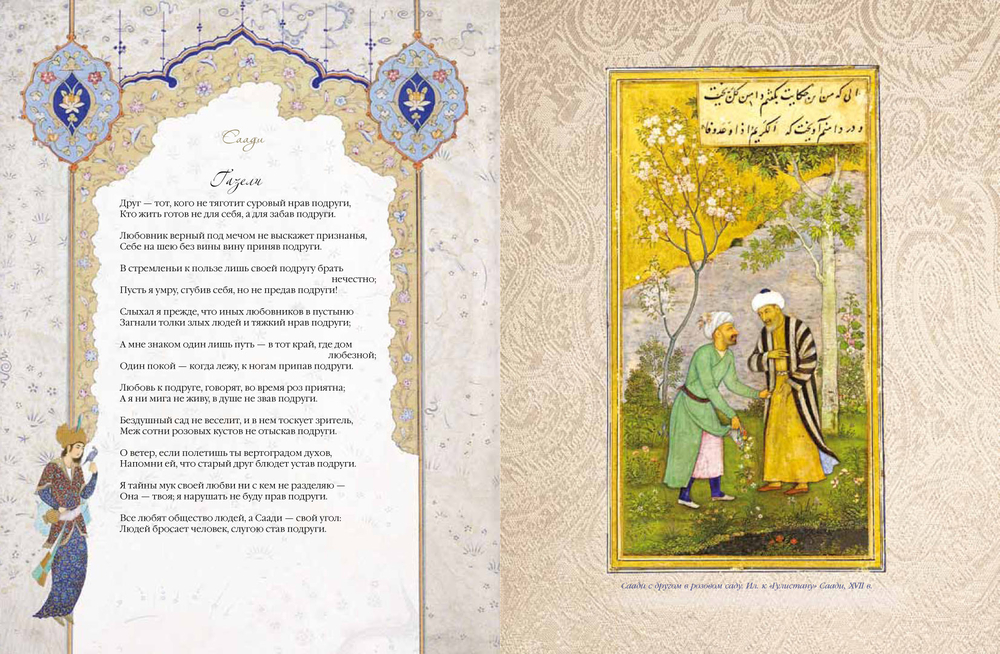 Саади
Газели
Друг — тот, кого не тяготит суровый нрав подруги,
Кто жить готов не для себя, а для забав подруги.
Любовник верный под мечом не выскажет признанья,
Себе на шею без вины вину приняв подруги.
В стремленьи к пользе лишь своей подругу брать
нечестно;
Пусть я умру, сгубив себя, но не предав подруги!
Слыхал я прежде, что иных любовников в пустыню
Загнали толки злых людей и тяжкий нрав подруги;
А мне знаком один лишь путь — в тот край, где дом
любезной;
Один покой — когда лежу, к ногам припав подруги.
Любовь к подруге, говорят, во время роз приятна;
А я ни мига не живу, в душе не звав подруги.
Бездушный сад не веселит, и в нем тоскует зритель,
Меж сотни розовых кустов не отыскав подруги.
О ветер, если полетишь ты вертоградом духов,
Напомни ей, что старый друг блюдет устав подруги.
Я тайны мук своей любви ни с кем не разделяю —
Она — твоя; я нарушать не буду прав подруги.
Все любят общество людей, а Саади — свой угол:
Людей бросает человек, слугою став подруги.
الی که من این حکایت بگفتم دامن گل بریخت
و در دامنم آویخت که الکریم اذا وعد وفا
Саади с другом в розовом саду. Ил. к «Гулистану» Саади, XVII в.